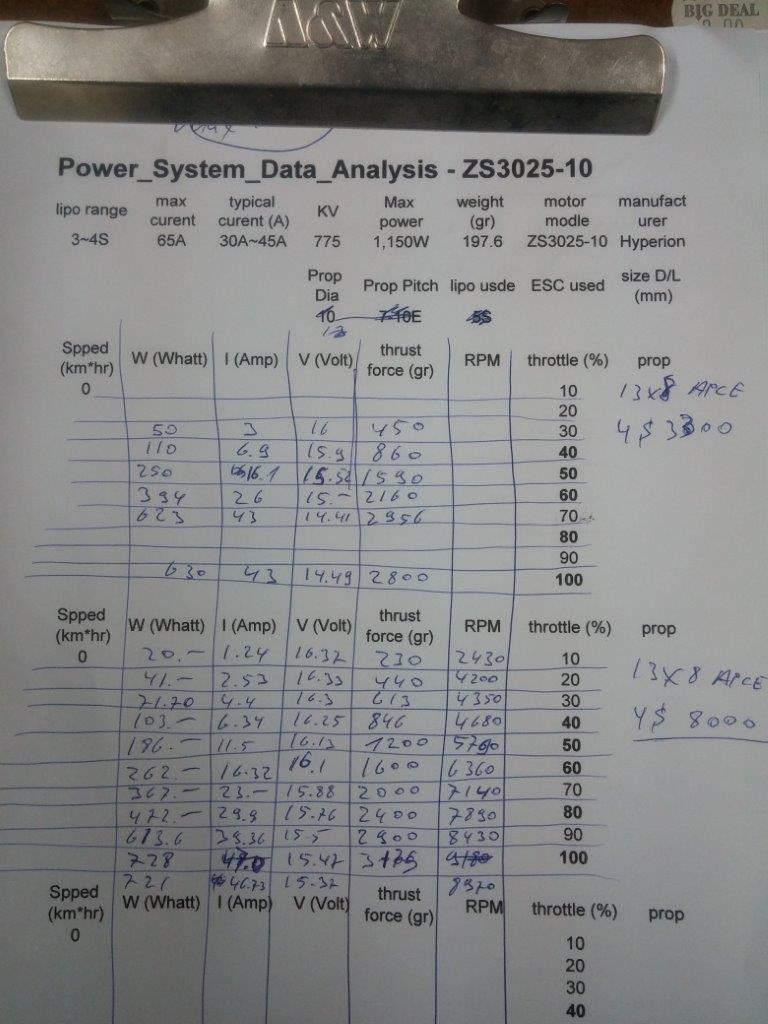 BIG DEAL
A&W
Power_System_Data_Analysis - ZS3025-10
lipo range max curent typical curent (A) KV Max power weight (gr) motor modle manufact urer
3~4S 65A 30A~45A 775 1,150W 197.6 ZS3025-10 Hyperion
Prop Dia Prop Pitch lipo usde ESC used size D/L (mm)
10 7-10E 5S
13
Spped (km*hr) W (Whatt) I (Amp) V (Volt) thrust force (gr) RPM throttle (%) prop
0 10 13x8 APCE
20
50 3 16 450 30 4S 3300
110 6.9 15.9 860 40
250 16.1 15.54 1590 50
394 26 15.- 2160 60
623 43 14.41 2956 70
80
90
630 43 14.49 2800 100
Spped (km*hr) W (Whatt) I (Amp) V (Volt) thrust force (gr) RPM throttle (%) prop
0 20.- 1.24 16.32 230 2430 10
41.- 2.53 16.33 440 4200 20 13x8 APCE
71.70 4.4 16.3 613 4350 30
103.- 6.34 16.25 846 4680 40 4S 8000
186.- 11.5 16.13 1200 5760 50
262.- 16.32 16.1 1600 6360 60
367.- 23.- 15.88 2000 7140 70
472.- 29.9 15.76 2400 7890 80
613.6 39.36 15.5 2900 8430 90
728 47.0 15.47 3175 9180 100
721 46.73 15.32 8970
Spped (km*hr) W (Whatt) I (Amp) V (Volt) thrust force (gr) RPM throttle (%) prop
0 10
20
30
40